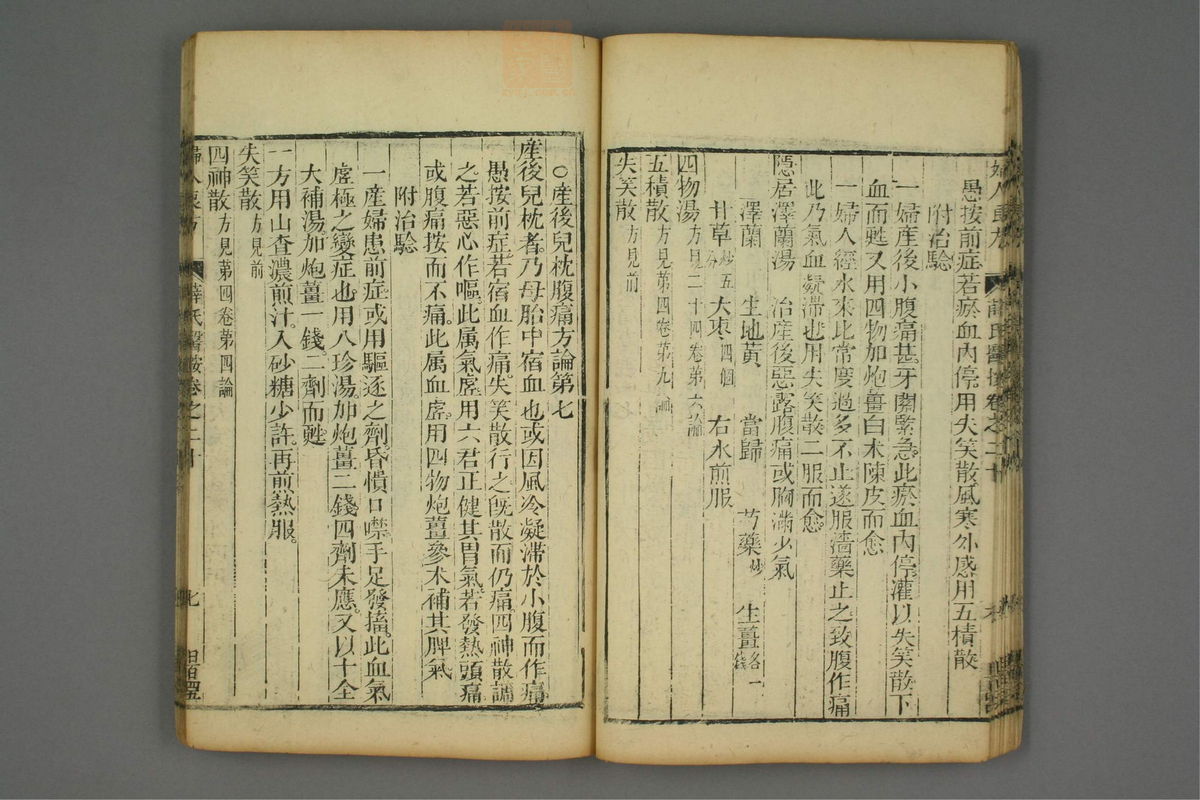 婦人良方
薛氏醫按卷之二十
愚按前症若瘀血內停用失笑散風寒外感用五積散
附治驗
一婦產後小腹痛甚牙關緊急此瘀血內停灌以失笑散下
血而甦又用四物加炮薑白朮陳皮而愈
一婦人經水來比常度過多不止遂服濇藥止之致腹作痛
此乃氣血凝滯也用失笑散二服而愈
隱居澤蘭湯 治產後惡露腹痛或胸滿少氣
澤蘭 生地黃 當歸 芍藥炒 生薑各一錢
甘草炒五分 大棗四個 右水煎服
四物湯方見二十四卷第六論
五積散方見第四卷第九論
失笑散方見前
○產後兒枕腹痛方論第七
產後兒枕者乃母胎中宿血也或因風冷凝滯於小腹而作痛
愚按前症若宿血作痛失笑散行之旣散而仍痛四神散調
之若惡心作嘔此属氣虛用六君正健其胃氣若發熱頭痛
或腹痛按而不痛此属血虛用四物炮薑參朮補其脾氣
附治驗
一產婦患前症或用驅逐之劑昏憒口噤手足發搐此血氣
虛極之變症也用八珍湯加炮薑二錢四劑未應又以十全
大補湯加炮薑一錢二劑而甦
一方用山查濃煎汁入砂糖少許再煎熱服
失笑散方見前
四神散方見第四卷第四論
婦人良方
薛氏醫按卷之二十